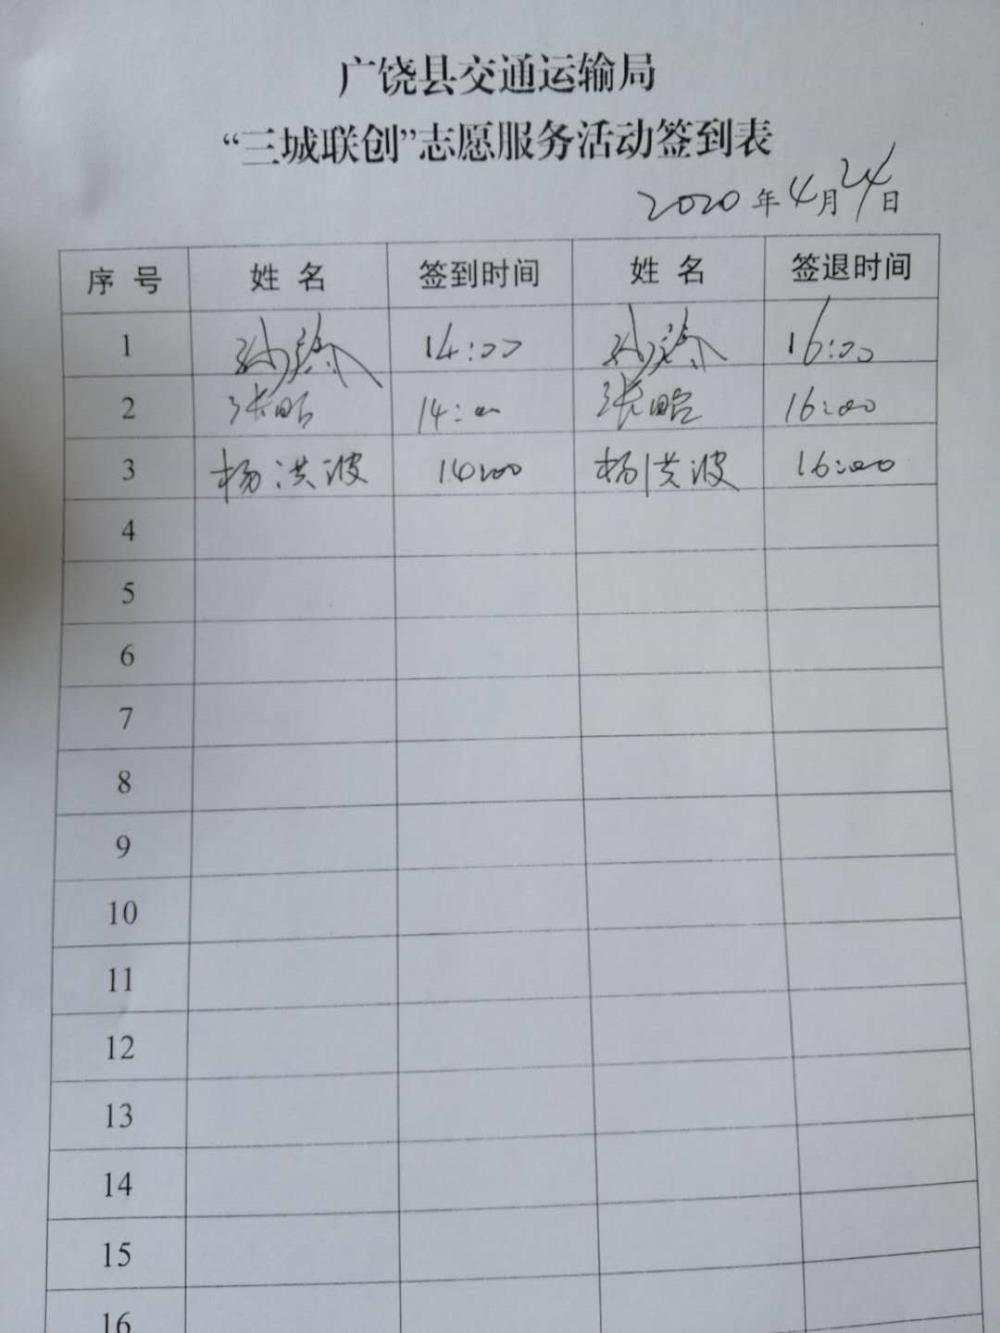 广饶县交通运输局
“三城联创”志愿服务活动签到表
2020年4月24日
序号 姓名 签到时间 姓名 签退时间
1 14:00 16:00
2 张 14:00 张 16:00
3 杨洪波 14:00 杨洪波 16:00
4
5
6
7
8
9
10
11
12
13
14
15
16